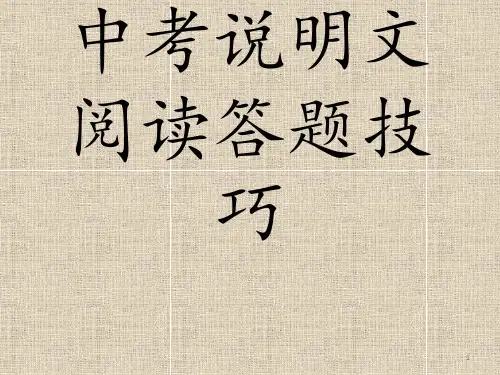 中考说明文
阅读答题技
巧